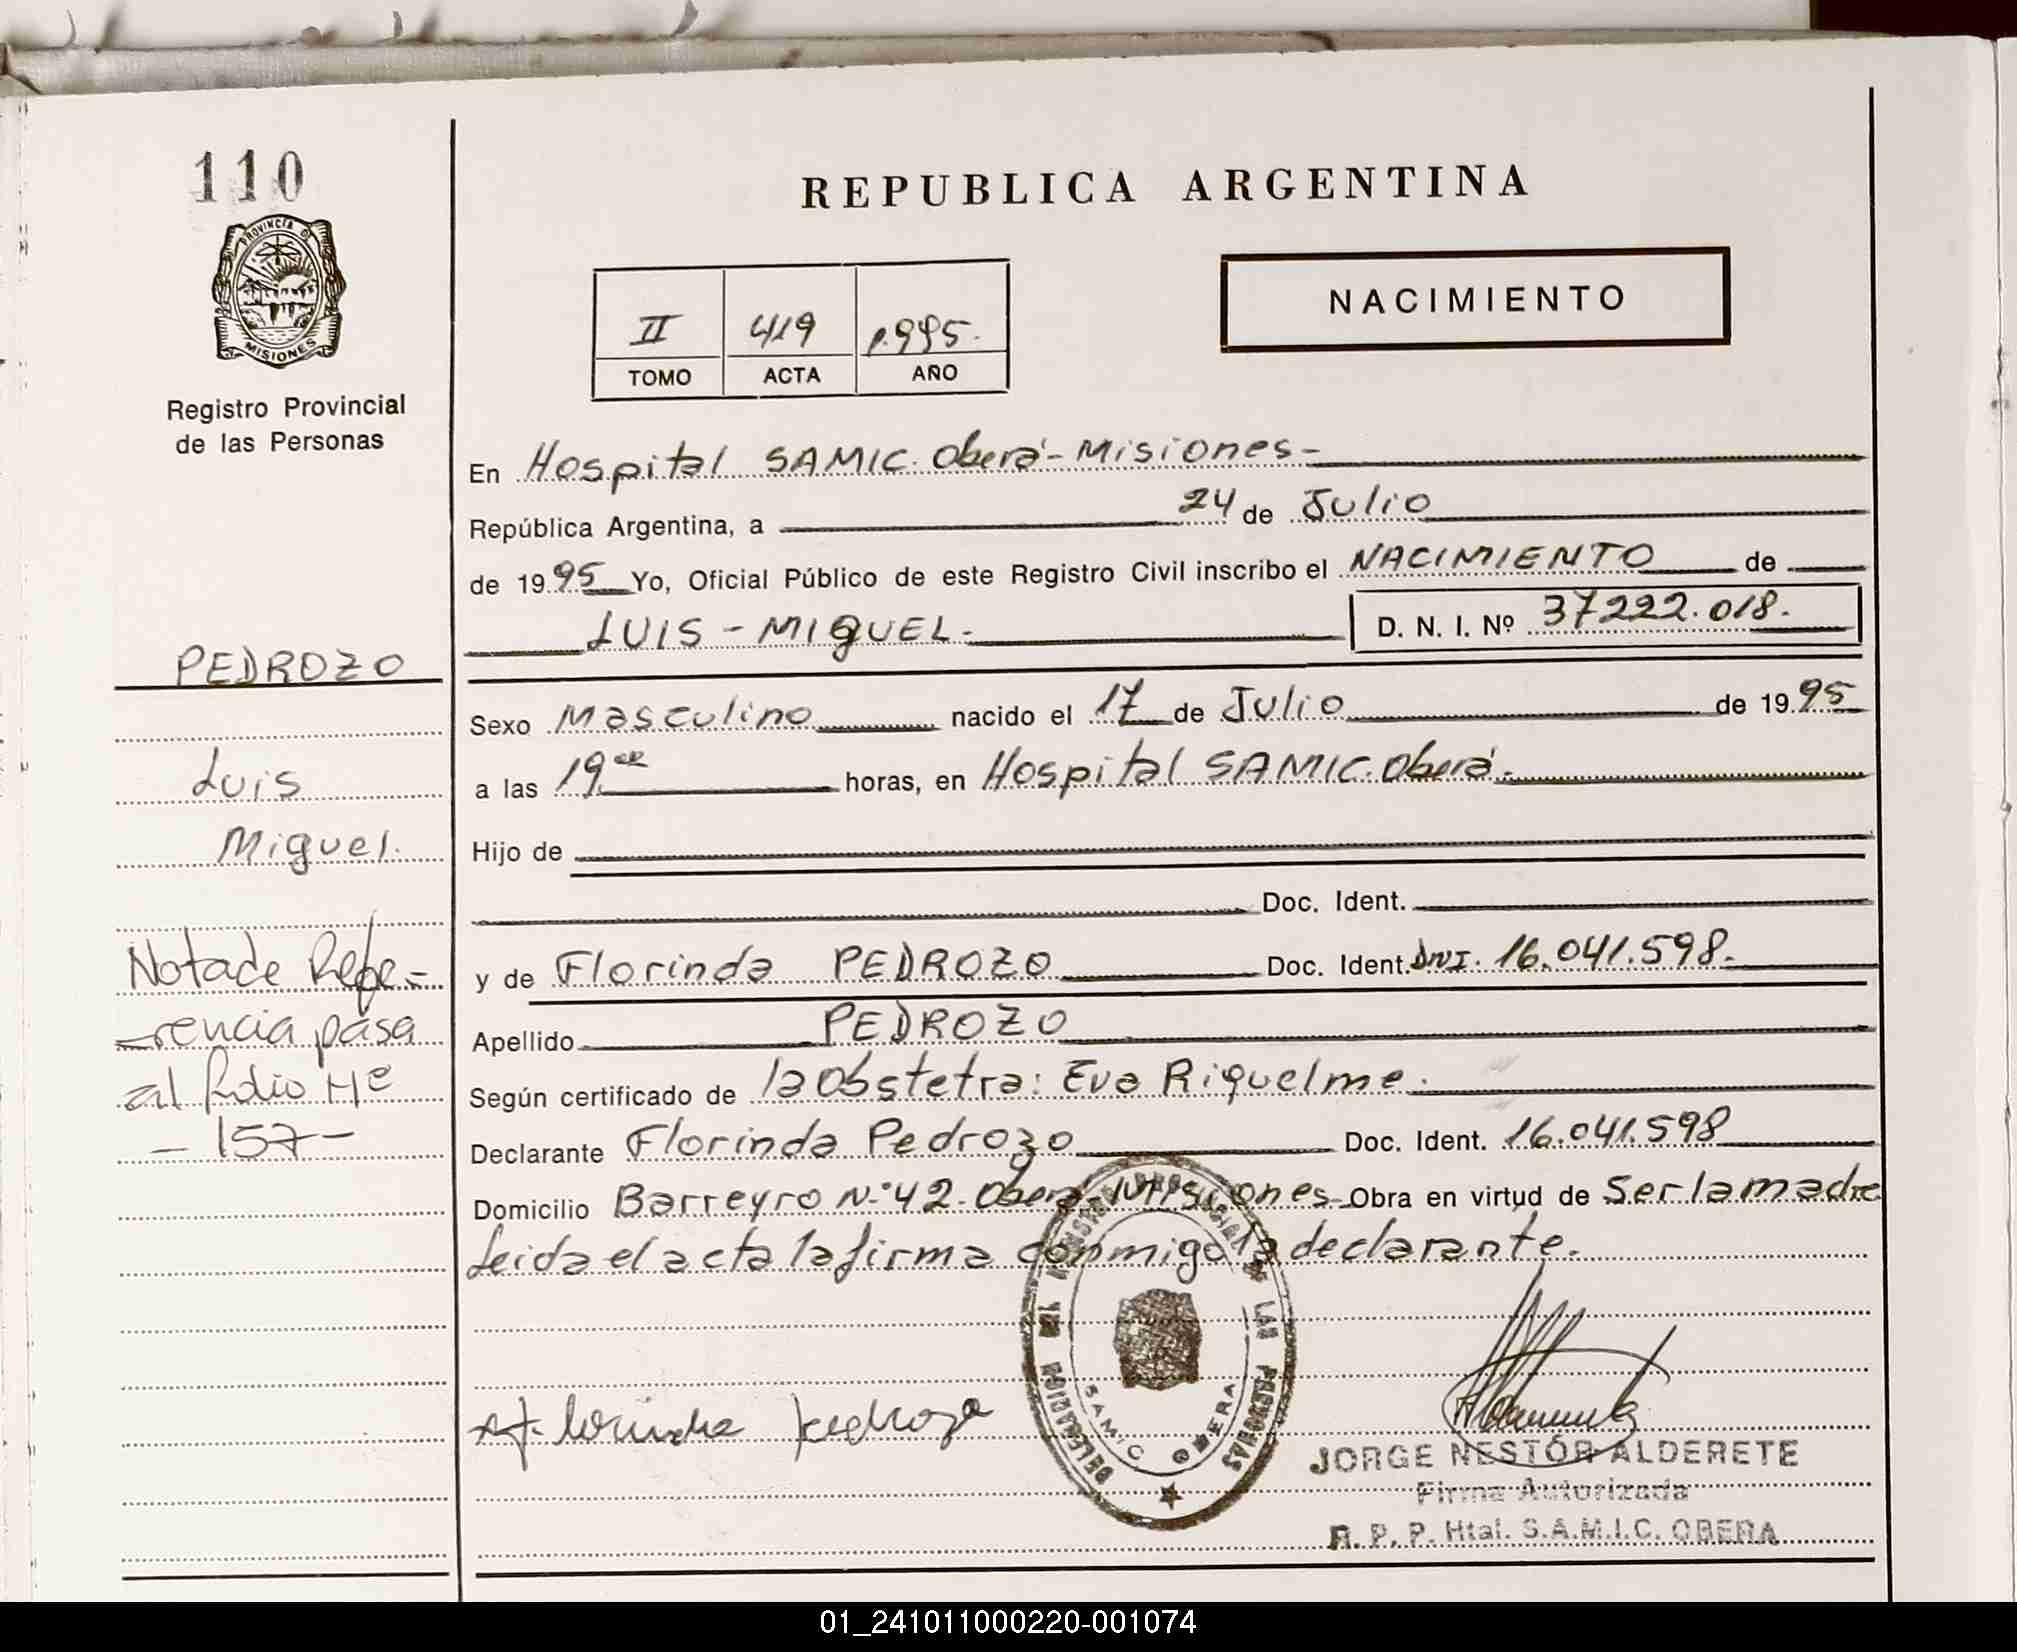 110
PROVINCIA DE
MISIONES
Registro Provincial
de las Personas
REPUBLICA ARGENTINA
II 419 1.995.
TOMO ACTA AÑO
NACIMIENTO
En Hospital SAMIC. Oberá - Misiones -
República Argentina, a 24 de Julio
de 1995 Yo, Oficial Público de este Registro Civil inscribo el NACIMIENTO de
LUIS - MIGUEL - D. N. I. Nº 37222.018.
Sexo Masculino nacido el 17 de Julio de 1995
a las 19 horas, en Hospital SAMIC. Oberá -
Hijo de
Doc. Ident.
y de Florinda PEDROZO Doc. Ident. DNI. 16.041.598.
Apellido PEDROZO
Según certificado de la Obstetra: Eva Riquelme.
Declarante Florinda Pedrozo Doc. Ident. 16.041.598
Domicilio Barreyro N.º 42. Oberá Misiones - Obra en virtud de Ser la madre
Leida el acta la firma conmigo la declarante.
PEDROZO
Luis
Miguel.
Nota de Refe=
-rencia pasa
al folio Nº
- 157 -
Florinda Pedrozo
DELEGACION LAS PERSONAS
SAMIC OBERA
JORGE NESTÓR ALDERETE
Firma Autorizada
R. P. P. Htal. S.A.M.I.C. OBERA
01_241011000220-001074